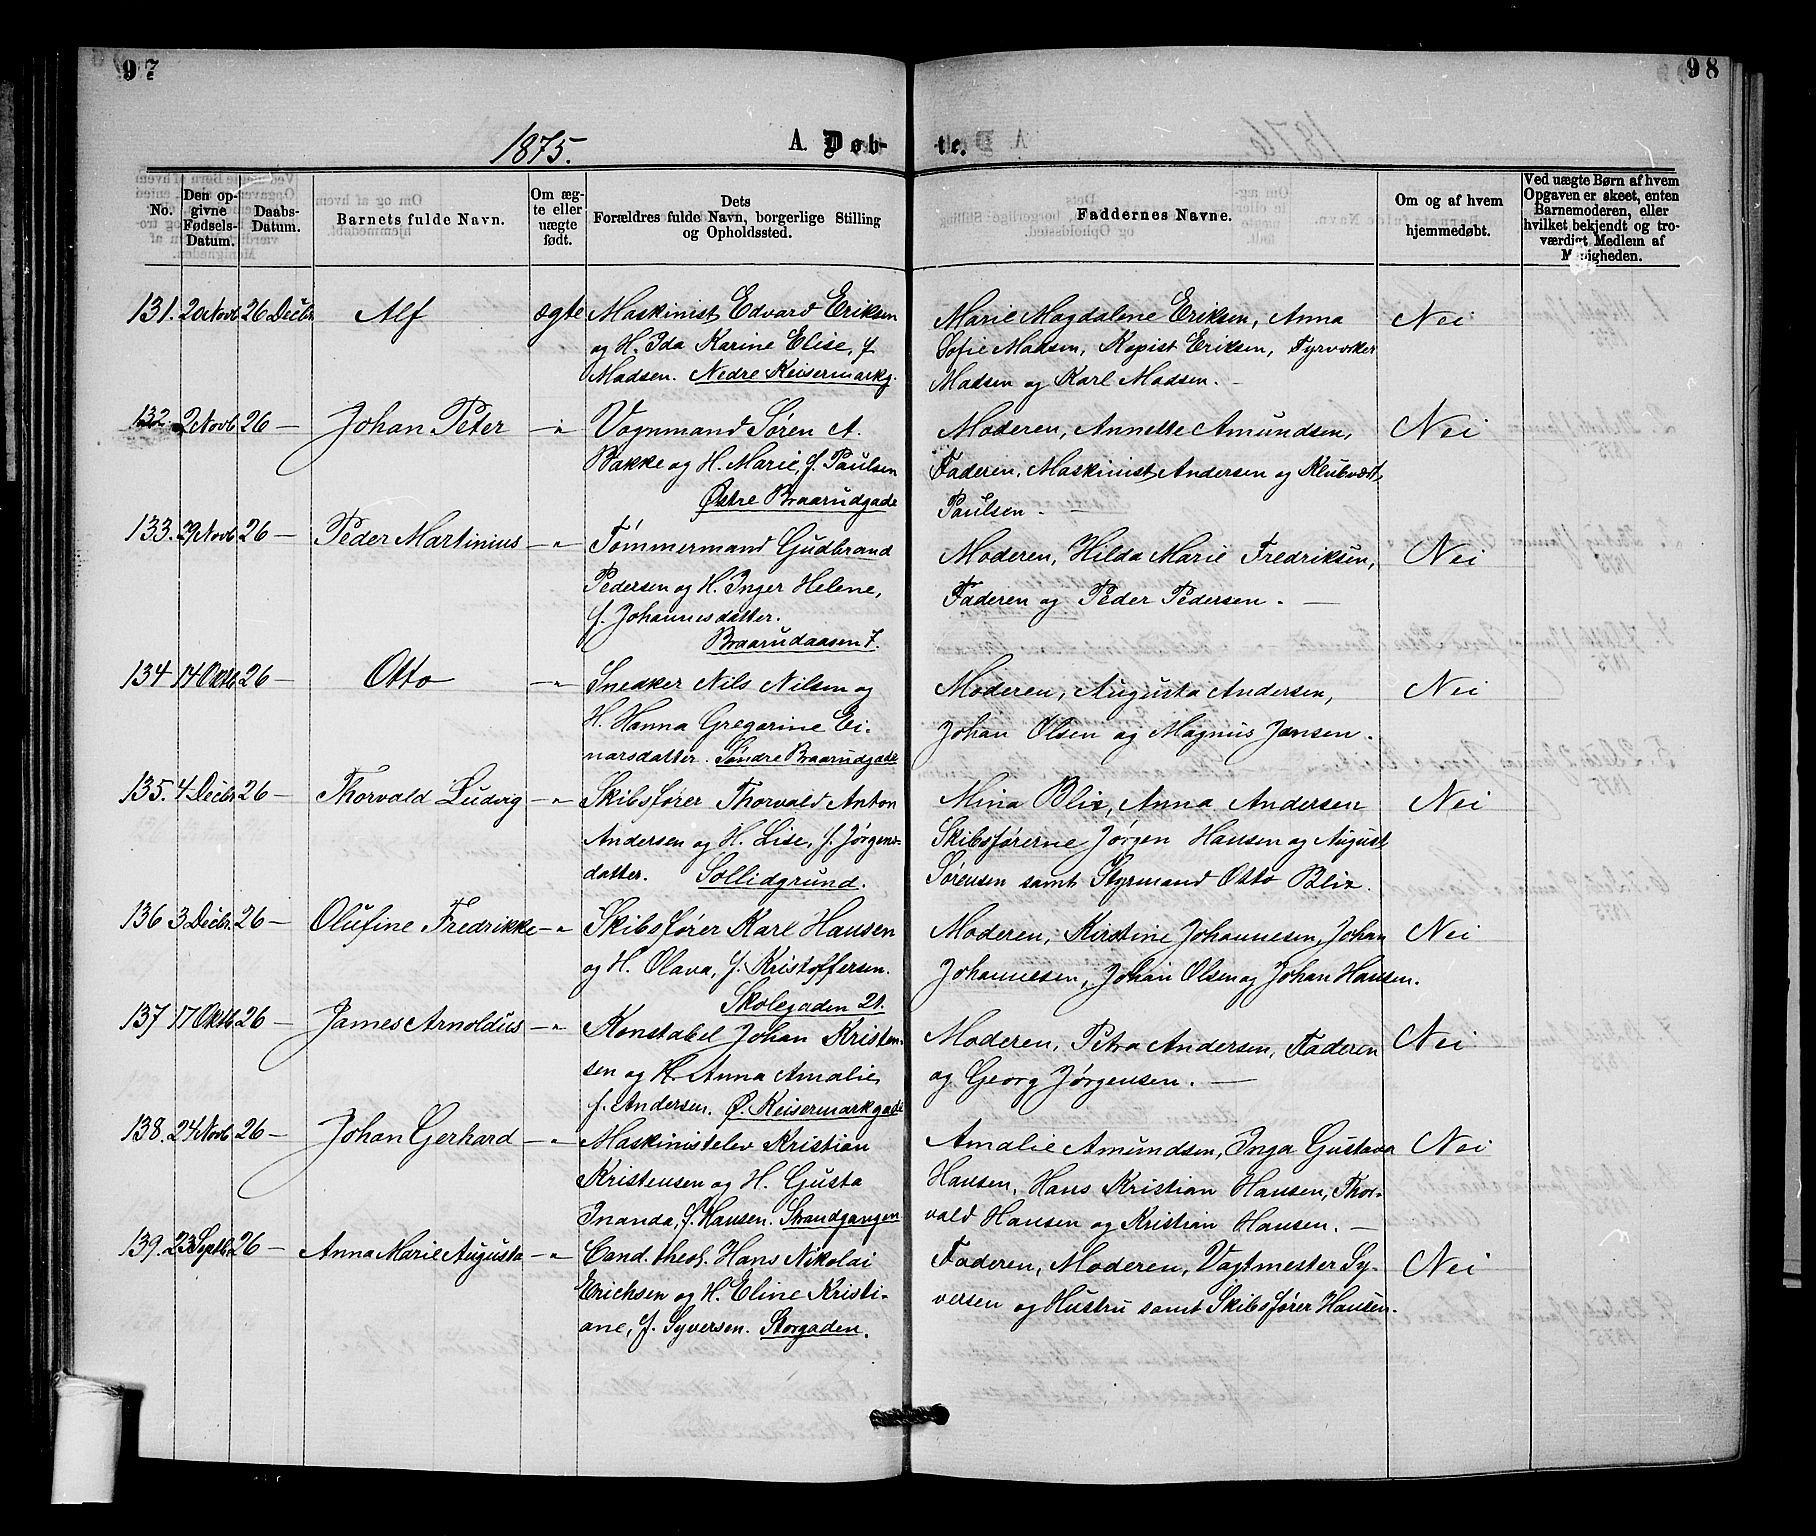 97
98
1875.
A. Døb-
te.
No.
Den op-
givne
Fødsels-
Datum.
Daabs-
Datum.
Barnets fulde Navn.
Om æg-
te eller
uægte
født.
Dets
Forældres fulde Navn, borgerlige Stilling
og Opholdssted.
Faddernes Navne.
Om og af hvem
hjemmedøbt.
Ved uægte Børn af hvem
Opgaven er skeet, enten
Barnemoderen, eller
hvilket bekjendt og tro-
værdigt Medlem af
Menigheden.
131. 20 Novb 26 Decbr Alf ægte Maskinist Edvard Eriksen
og H. Ida Karine Elise, f.
Madsen. Nedre Keisermarkg.
Marie Magdalene Eriksen, Anna
Sofie Madsen, Kopist Eriksen, Fyrvoker
Madsen og Karl Madsen. –
Nei
132. 2 Novb 26 – Johan Peter – " Vognmand Søren A.
Bakke og H. Marie, f. Paulsen
Østre Braarudgade
Moderen, Annette Amundsen,
Faderen, Maskinist Andersen og Klubvært
Paulsen. –
Nei
133. 29 Novb 26 – Peder Martinius – " Tømmermand Gudbrand
Pedersen og H. Inger Helene,
f. Johannesdatter.
Braarudaasen 7.
Moderen, Hilda Marie Fredriksen,
Faderen og Peder Pedersen. –
Nei
134 14 Oktb 26 – Otto – " Snedker Nils Nilsen og
H. Hanna Gregorine Ei-
narsdatter. Søndre Braarudgade
Moderen, Augusta Andersen,
Johan Olsen og Magnus Jansen.
Nei
135. 4 Decbr 26 – Thorvald Ludvig – " Skibsfører Thorvald Anton
Andersen og H. Lise, f. Jørgens-
datter. Sollidgrund.
Mina Blix, Anna Andersen
Skibsførerne Jørgen Hansen og August
Sørensen samt Styrmand Otto Blix.
Nei
136 3 Decbr. 26 – Olufine Fredrikke – " Skibsfører Karl Hansen
og H. Olava, f. Kristoffersen.
Skolegaden 21.
Moderen, Kirstine Johannesen, Johan
Johannesen, Johan Olsen og Johan Hansen.
Nei
137 17 Oktb 26 – James Arnoldus – " Konstabel Johan Kristen-
sen og H. Anna Amalie,
f. Andersen. Ø. Keisermarkgade
Moderen, Petra Andersen, Faderen
og Georg Jørgensen. –
Nei
138. 24 Novb 26 – Johan Gerhard – " Maskinistelev Kristian
Kristensen og H. Gusta
Inanda, f. Hansen. Strandgangen
Amalie Amundsen, Inga Gustava
Hansen, Hans Kristian Hansen, Thor-
vald Hansen og Kristian Hansen. –
Nei
139. 23 Septb 26 – Anna Marie Augusta – " Cand. theol. Hans Nikolai
Erichsen og H. Eline Kristi-
ane, f. Syversen. Storgaden.
Faderen, Moderen, Vagtmester Sy-
versen og Hustru samt Skibsfører Hansen.
Nei